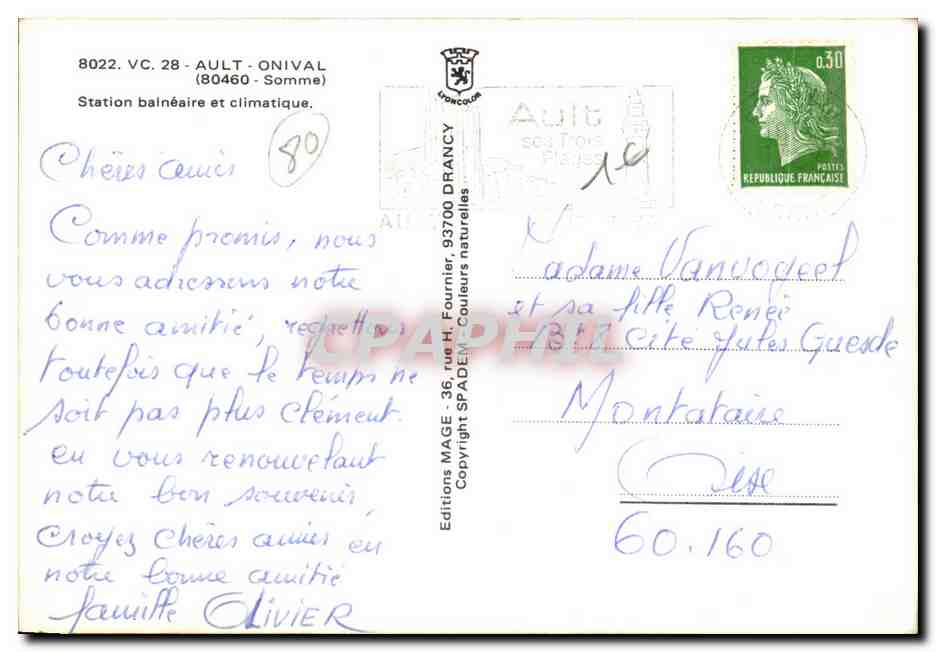 8022. VC. 28 - AULT - ONIVAL
(80460 - Somme)
Station balnéaire et climatique.
80
Chères amies
Comme promis, nous
vous adressons notre
bonne amitié, regrettons
toutefois que le temps ne
soit pas plus clément.
en vous renouvelant
notre bon souvenir,
croyez chères amies en
notre bonne amitié
famille OLIVIER
LYONCOLOR
Editions MAGE - 36, rue H. Fournier, 93700 DRANCY
Copyright SPADEM - Couleurs naturelles
Ault
ses Trois
Plages
1€
0,30
POSTES
REPUBLIQUE FRANÇAISE
Madame Vanvogeel
et sa fille Renée
Cité Jules Guesde
Montataire
Oise
60.160
CPAPHIL